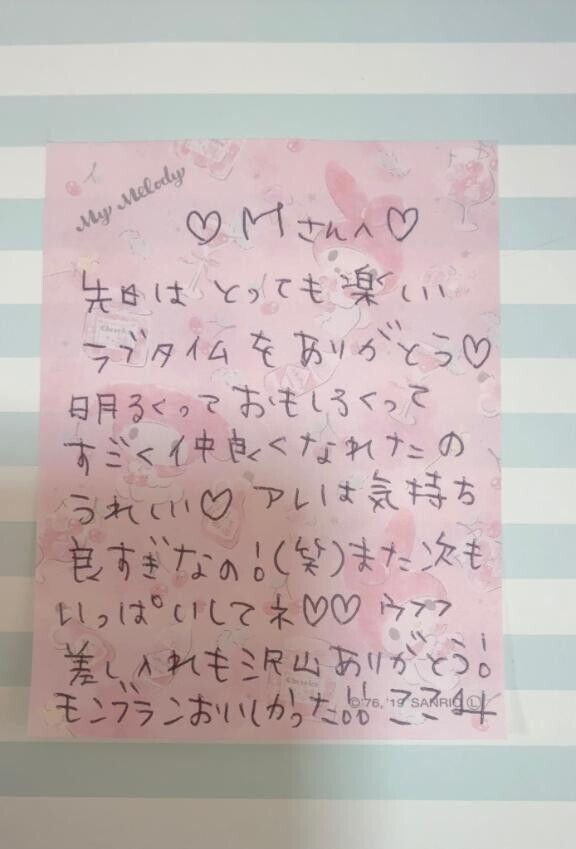 My Melody
♡Mさんへ♡
先日は とっても楽しい
ラブタイムをありがとう♡
明るくっておもしろくって
すごく仲良くなれたの
うれしい♡ アレは気持ち
良すぎなの!(笑)また次も
いっぱいしてネ♡♡ ウフフ
差し入れも沢山ありがとう!
モンブランおいしかった!!
©'76, '19 SANRIO Ⓛ